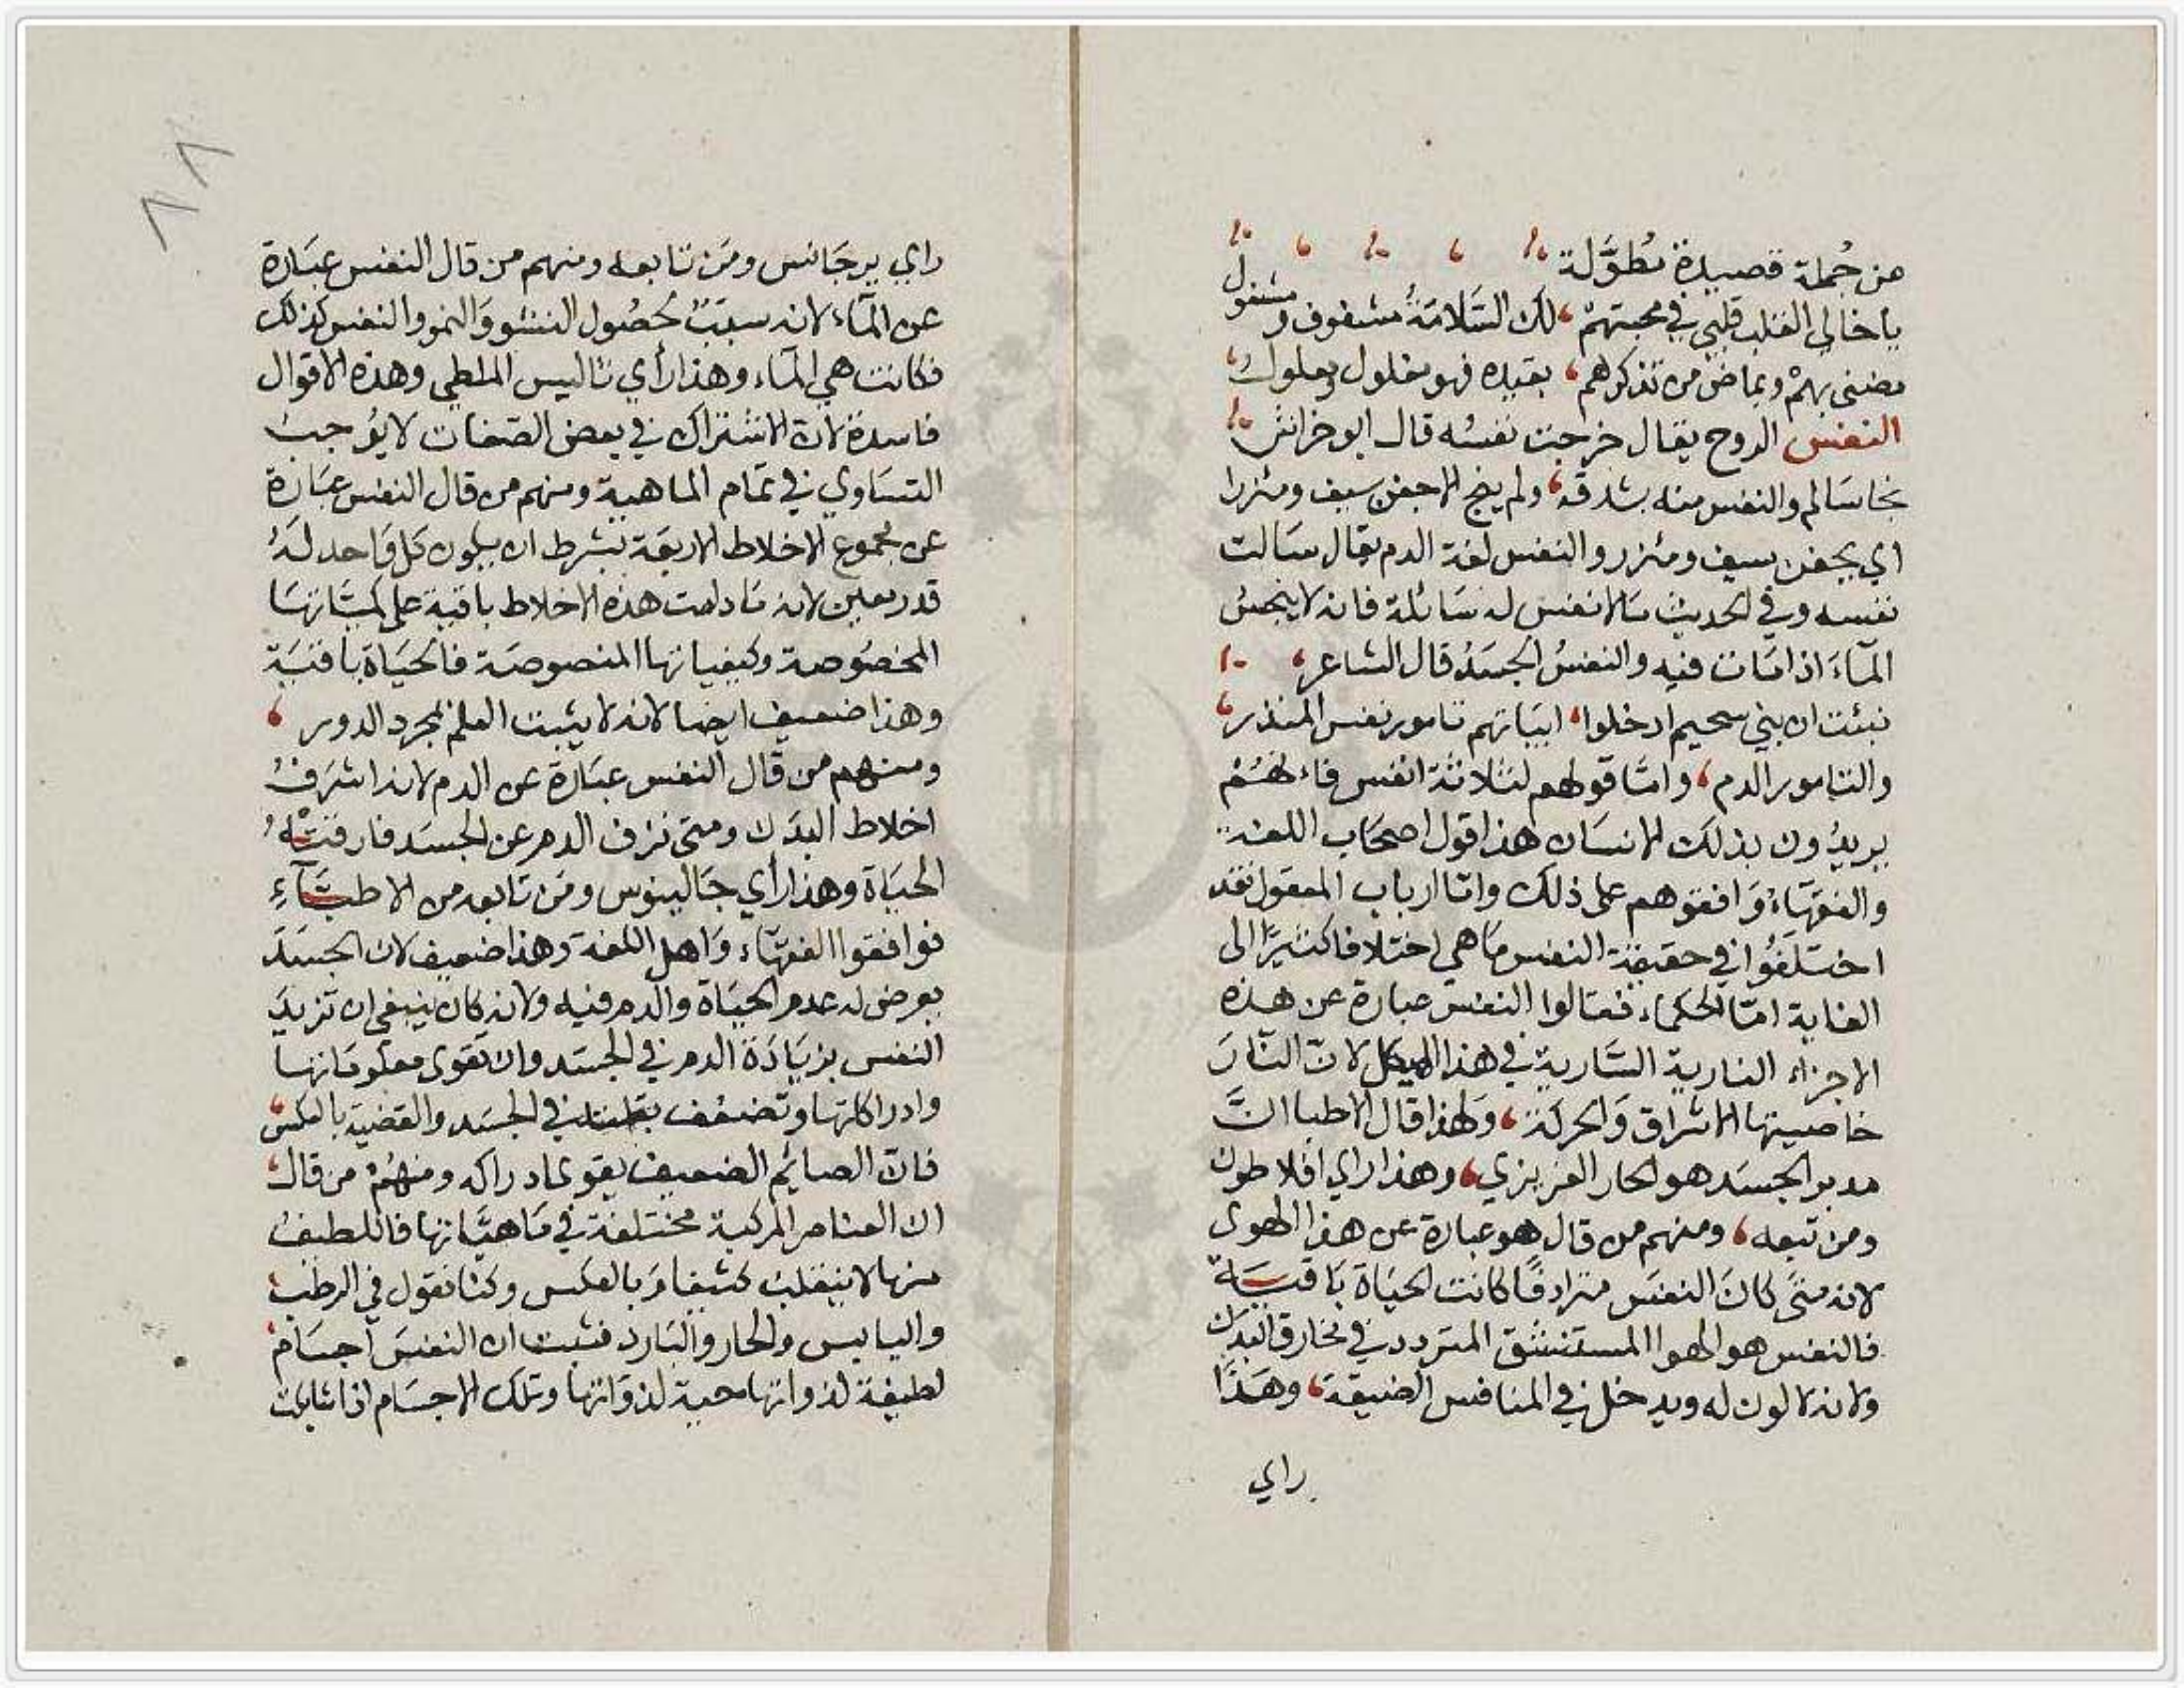 من جُملة قصيدة مُطوَّلة
يا خالي القلب قلبي في محبتهمْ لك السَّلامَةُ مشغوف ومشغول
مضنى بهمْ وبماض من تذكرهم بقيده فهو مغلول ومعلول
النفس الروح يقال خرجت نفسُه قال ابو خراش
نجا سَالم والنفس منه بشدقه ولم ينج الا جفن سيف ومئزرا
اي بجفن سيف ومئزر والنفس لغة الدم يقال سَالت
نفسه وفي الحديث مَا لا نفس له سَائلة فانه لا ينجسُ
المآءَ اذا مَات فيه والنفسُ الجسَدُ قال الشاعر
نبئت ان بني سحيم ادخلوا ابيَاتهم تامور نفس المنذر
والتامور الدم وامَّا قولهم ثلاثة انفس فاءنهُمْ
يريدُون بذلك الانسَان هذا قول اصحَاب اللغة
والفقهَآءُ وَافقوهم على ذلك وامّا ارباب المعقول فقد
اختلَفُوا في حقيقة النفس مَا هي اختلافا كثيرًا الى
الغاية امّا الحكماء فقالوا النفس عبارة عن هذه
الاجزاء النارية السَّارية في هذا الهيكل لانّ النّارَ
خاصيتها الاشراق وَالحركة وَلهذا قال الاطبا انَّ
مدبر الجسَد هو الحار الغريزي وهذا راي افلاطون
ومن تبعه ومنهم من قال هو عبارة عن هذا الهوى
لانه متىَ كانَ النفَس مترادفًا كانت الحيَاة بَاقيَة
فالنفس هو الهوا المستنشق المتردد في مخارق البَدَن
ولانه لا لون له ويدخل في المنافس الضيقة وهَذَا
راي
راي برجَانس ومَن تابعه ومنهم من قال النفس عبَارة
عن المآء لانه سببٌ لحصُول النشو وَالنمو والنفس كذلك
فكانت هي المآء وهذا رأي ثاليس الملطي وهذه الاقوال
فاسدة لانّ الاشتراك في بعض الصّفات لا يوُجبُ
التسَاوي في تمَام الماهية ومنهم من قال النفس عبَارة
عن مجموع الاخلاط الاربعَة بشرط ان يكون كل وَاحد لهُ
قدر معين لانه مَا دامت هذه الاخلاط باقية على كميَّاتهَا
المخصُوصة وكيفياتها المنصوصَة فالحيَاة باقيَة
وهذا ضعيف ايضا لانه لا يثبت العلم لمجرد الدور
ومنهم من قال النفس عبَارة عن الدم لانه اشرَفُ
اخلاط البدَن ومتى نزف الدم عن الجسَد فارقتْهُ
الحيَاة وهذا رأي جَالينوس ومَن تابعه من الاطبَّآءِ
فوافقوا الفقهَآء وَاهل اللغة وهذا ضعيف لان الجسَدَ
يعرض له عدم الحيَاة والدم فيه ولانه كان ينبغي ان تزيدَ
النفس بزيَادَة الدم في الجسَد وان تقوى معلومَاتها
وادراكاتها وتضعف بقلته في الجسَد والقضية بالعكس
فانّ الصائم الضعيف يقوى ادراكه ومنهُمْ من قال
ان العناصر المركبة مختلفة في مَاهيَّاتها فاللطيفُ
منها لا ينقلب كثيفا وَبالعكس وكذا نقول في الرطب
واليابس والحار والبَارد فثبت ان النفسَ اجسَام
لطيفة لذواتها محية لذوَاتها وتلك الاجسَام اذا شابكت